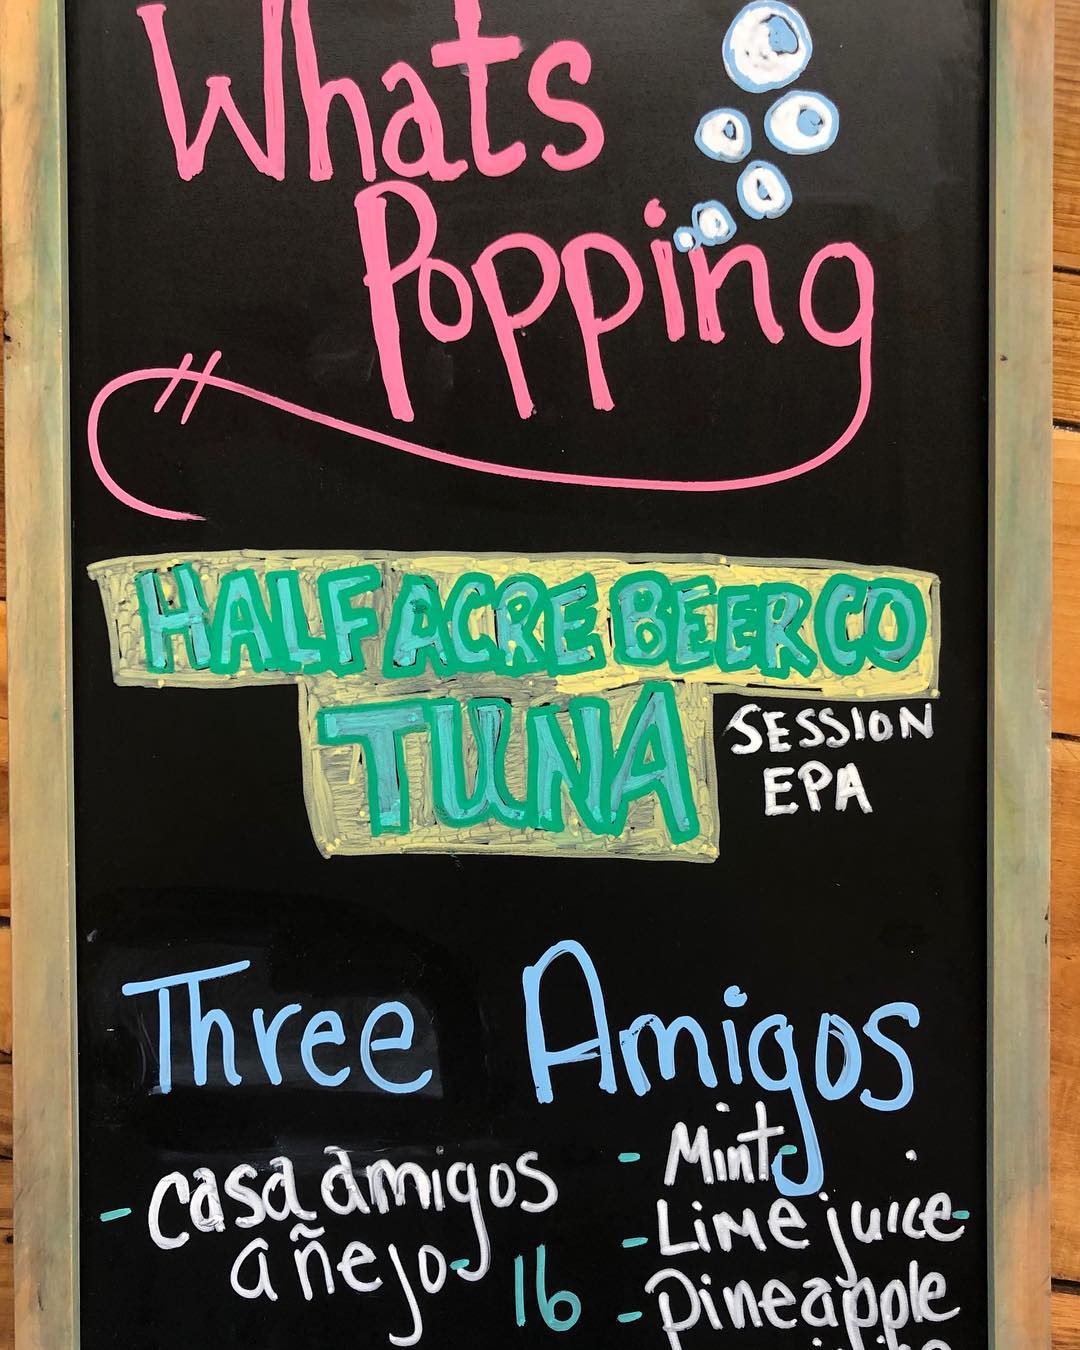 Whats
Popping
HALF ACRE BEER CO
TUNA
SESSION
EPA
Three Amigos
- casa amigos
añejo-
16
- Mint
- Lime juice-
- pineapple